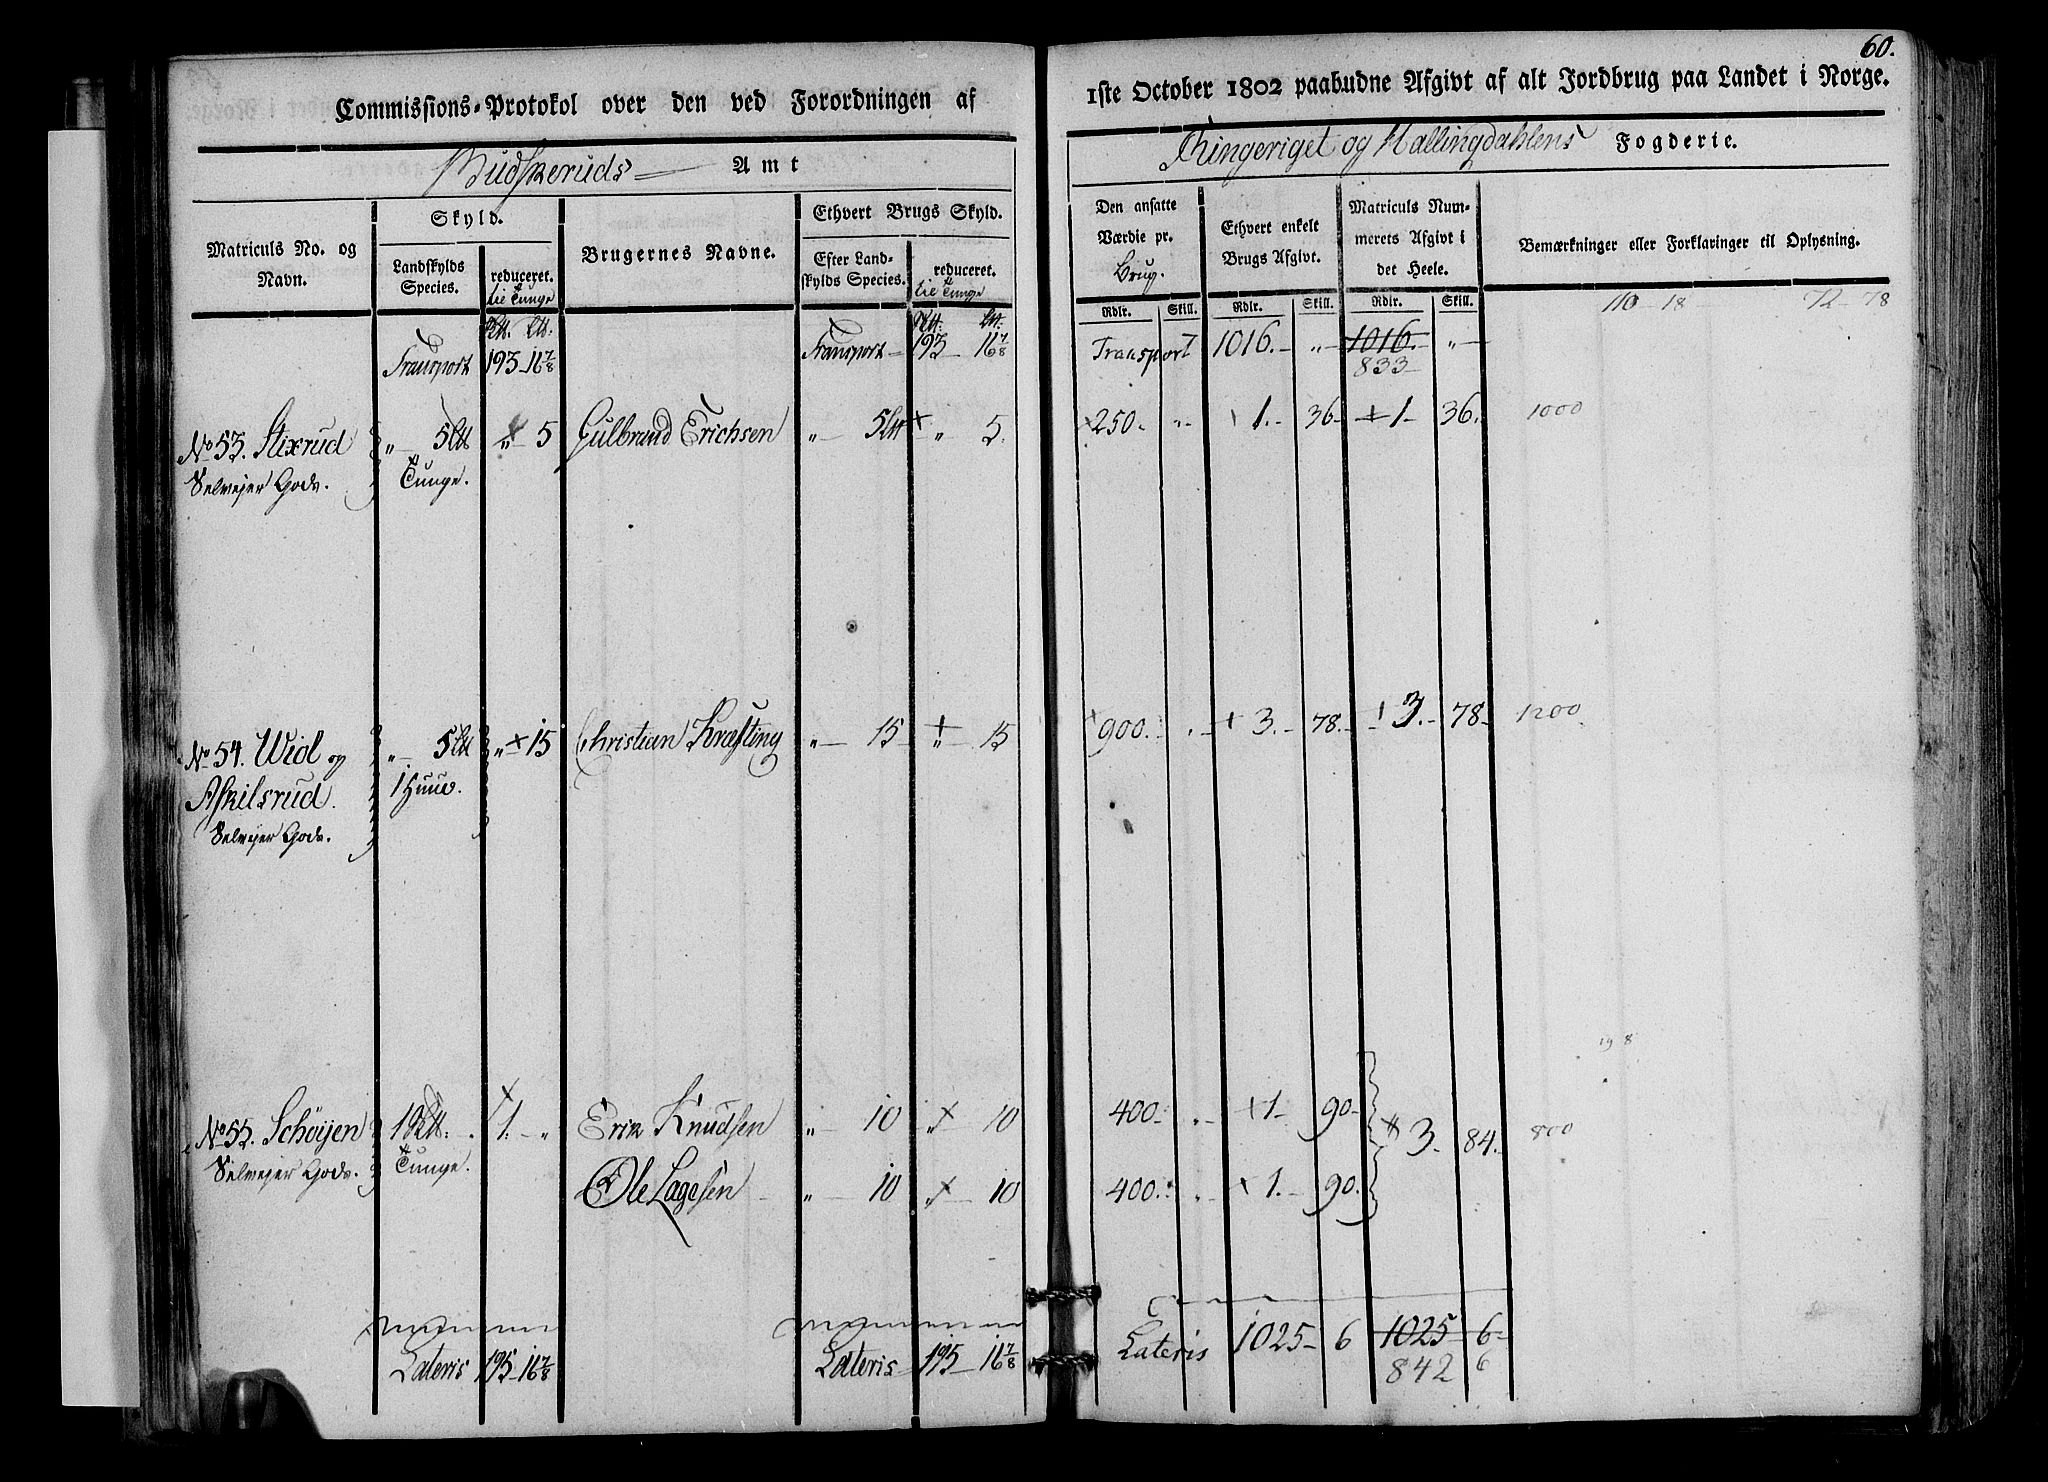 60.
Commissions-Protokol over den ved Forordningen af 1ste October 1802 paabudne Afgivt af alt Jordbrug paa Landet i Norge.
Budskeruds Amt
Ringeriget og Hallingdahlens Fogderie.
Matriculs No. og Navn.
Skyld.
Landskylds Species.
reduceret.
til Tunge
Brugernes Navne.
Ethvert Brugs Skyld.
Efter Landskylds Species.
reduceret.
til Tunge
Den ansatte Værdie pr. Brug.
Rdlr. Skill.
Ethvert enkelt Brugs Afgivt.
Rdlr. Skill.
Matriculs Nummerets Afgivt i det Heele.
Rdlr. Skill.
Bemærkninger eller Forklaringer til Oplysning.
110 - 18 72 - 78
Transport 193 - 16 7/8 Transport - 193 - 16 7/8 Transport 1016. - „ - 1016. „ -
833 -
No 53. Stixrud „ 5 Ltt „ 5 Gulbrand Erichsen „ - 5 Ltt „ 5. 250. „ 1. 36. 1 - 36. 1000
Selvejer Gods. Tunge.
No 54. Wiol og „ - 5 Ltt „ 15 Christian Kræfting „ - 15 „ - 15 900. - 3. - 78. 3. - 78 - 1200
Askilsrud. 1 Huud.
Selvejer Gods.
198
No 55. Schöyen 1 1. - „ Erik Knudsen „ - 10 „ - 10 400. 1 - 90. 3. 84. 800
Selvejer Gods. Tunge.
Ole Lagesen „ - 10 „ - 10 400. 1. - 90.
Lateris 195 - 16 7/8 Lateris 195 - 16 7/8 Lateris 1025 - 6 1025 6 -
842 6